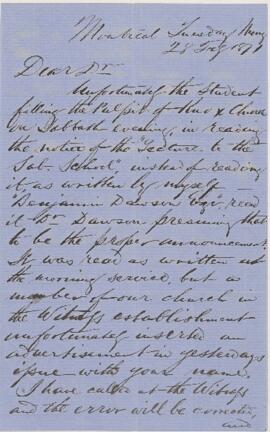 Montreal Tuesday Morng
28 Feby 1871
Dear Dr
Unfortunately the Student
filling the Pulpit of Knox Church
on Sabbath evening, in reading
the notice of the "Lecture to the
Sab. School," instead of reading
it as written by myself —
Benjamin Dawson Esqr, read
it Dr Dawson presuming that
to be the proper announcement.
It was read as written at
the morning service, but a
member of our church in
the Witness establishment
unfortunately inserted an
advertisement in yesterdays
issue with your name.
I have called at the Witness
and the error will be corrected,
and